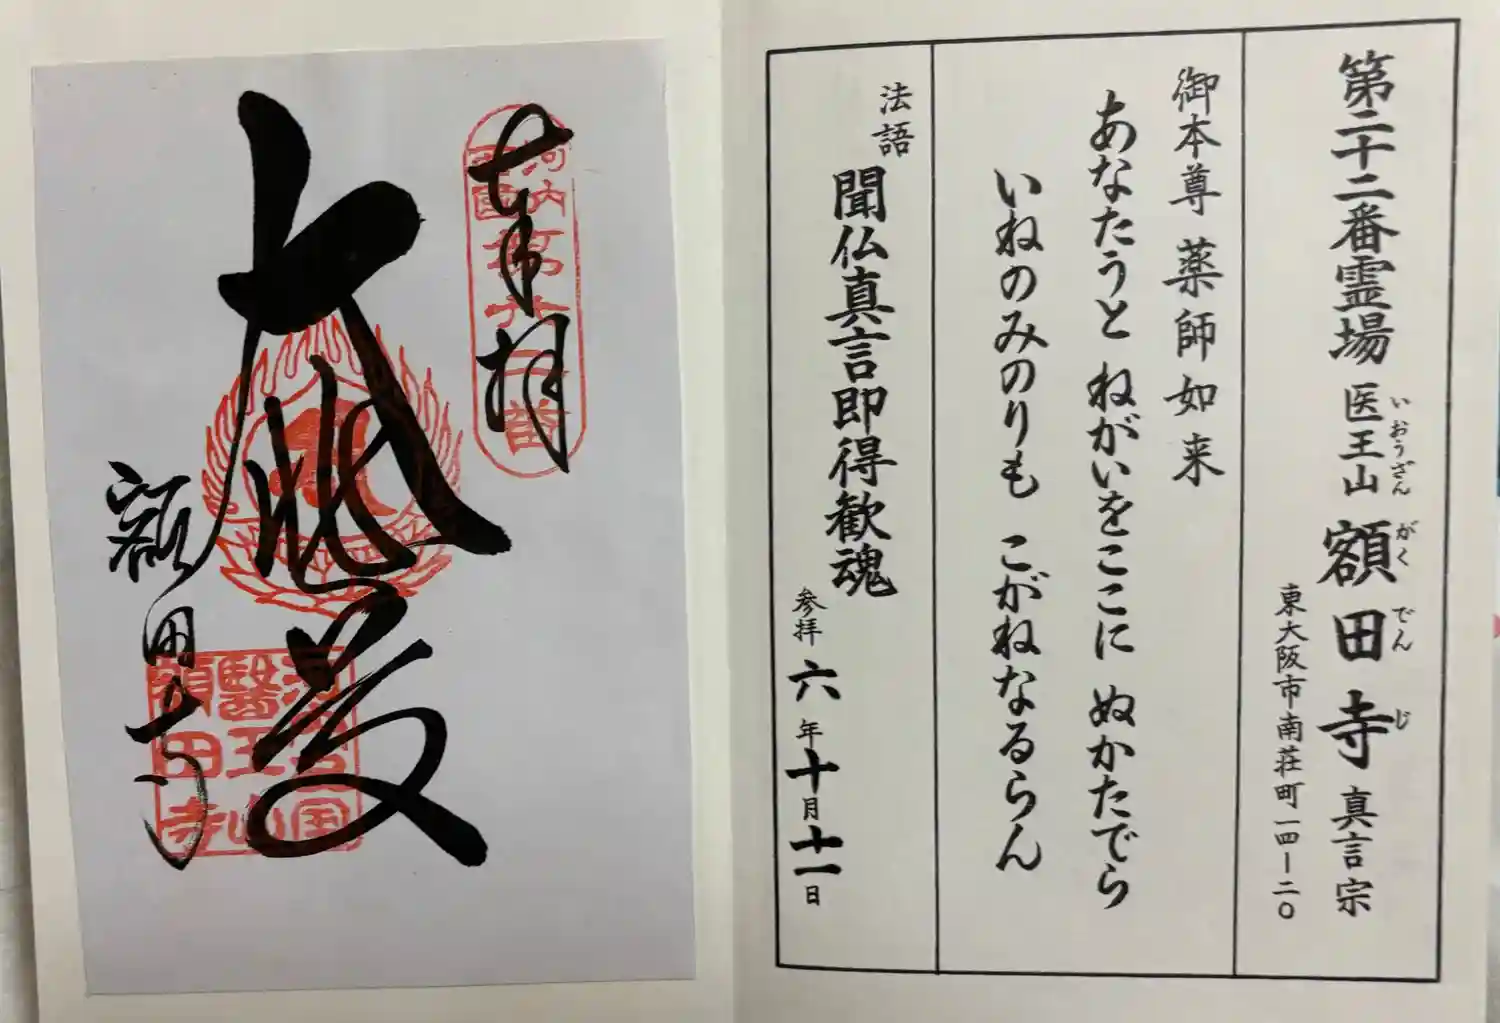 第二十二番霊場 医王山 額田寺 真言宗
いおうざん がくでんじ
東大阪市南荘町一四ー二〇
御本尊 薬師如来
あなたうと ねがいをここに ぬかたでら
いねのみのりも こがねなるらん
法語 聞仏真言即得歓魂
参拝 六年十月十一日
奉拝
河内
第廿二番
大悲殿
額田寺
医王山
額田寺